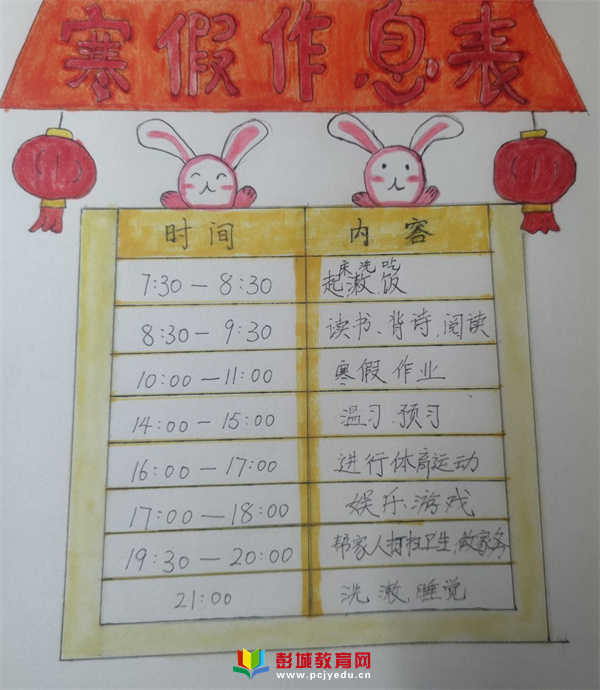 寒假作息表
时间 内容
7:30—8:30 起床、洗漱、吃饭
8:30—9:30 读书、背诗、阅读
10:00—11:00 寒假作业
14:00—15:00 温习、预习
16:00—17:00 进行体育运动
17:00—18:00 娱乐游戏
19:30—20:00 帮家人打扫卫生,做家务
21:00 洗漱,睡觉
彭城教育网
www.pcjyedu.cn